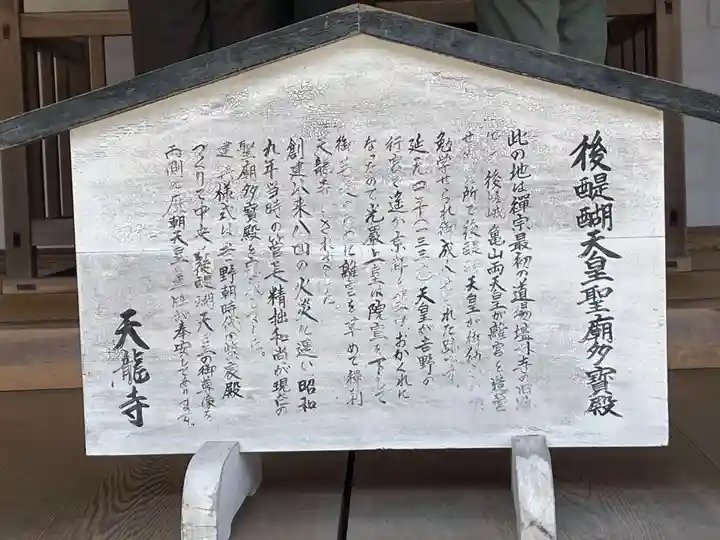 後醍醐天皇聖廟多寶殿
此の地は禪宗最初の道場壇林寺の旧
後嵯峨亀山両天皇が離宮を造営
せ 所で後醍 天皇が御幼
勉学せられ御成人 された
延元四年(一三三 天皇が吉野の
行宮で遙か京都 おかくれに
なったので光厳上皇は院宣を下して
離宮を革めて禅刹
天龍寺 されました
創建以来八回の火災に遇い昭和
九年当時の管長精拙和尚が現在の
聖廟多寶殿を
建 様式は吉野朝時代の紫宸殿
づくりで中央 後醍醐天皇の御尊像を
両側に歴朝天皇 尊牌が奉安してあります。
天龍寺